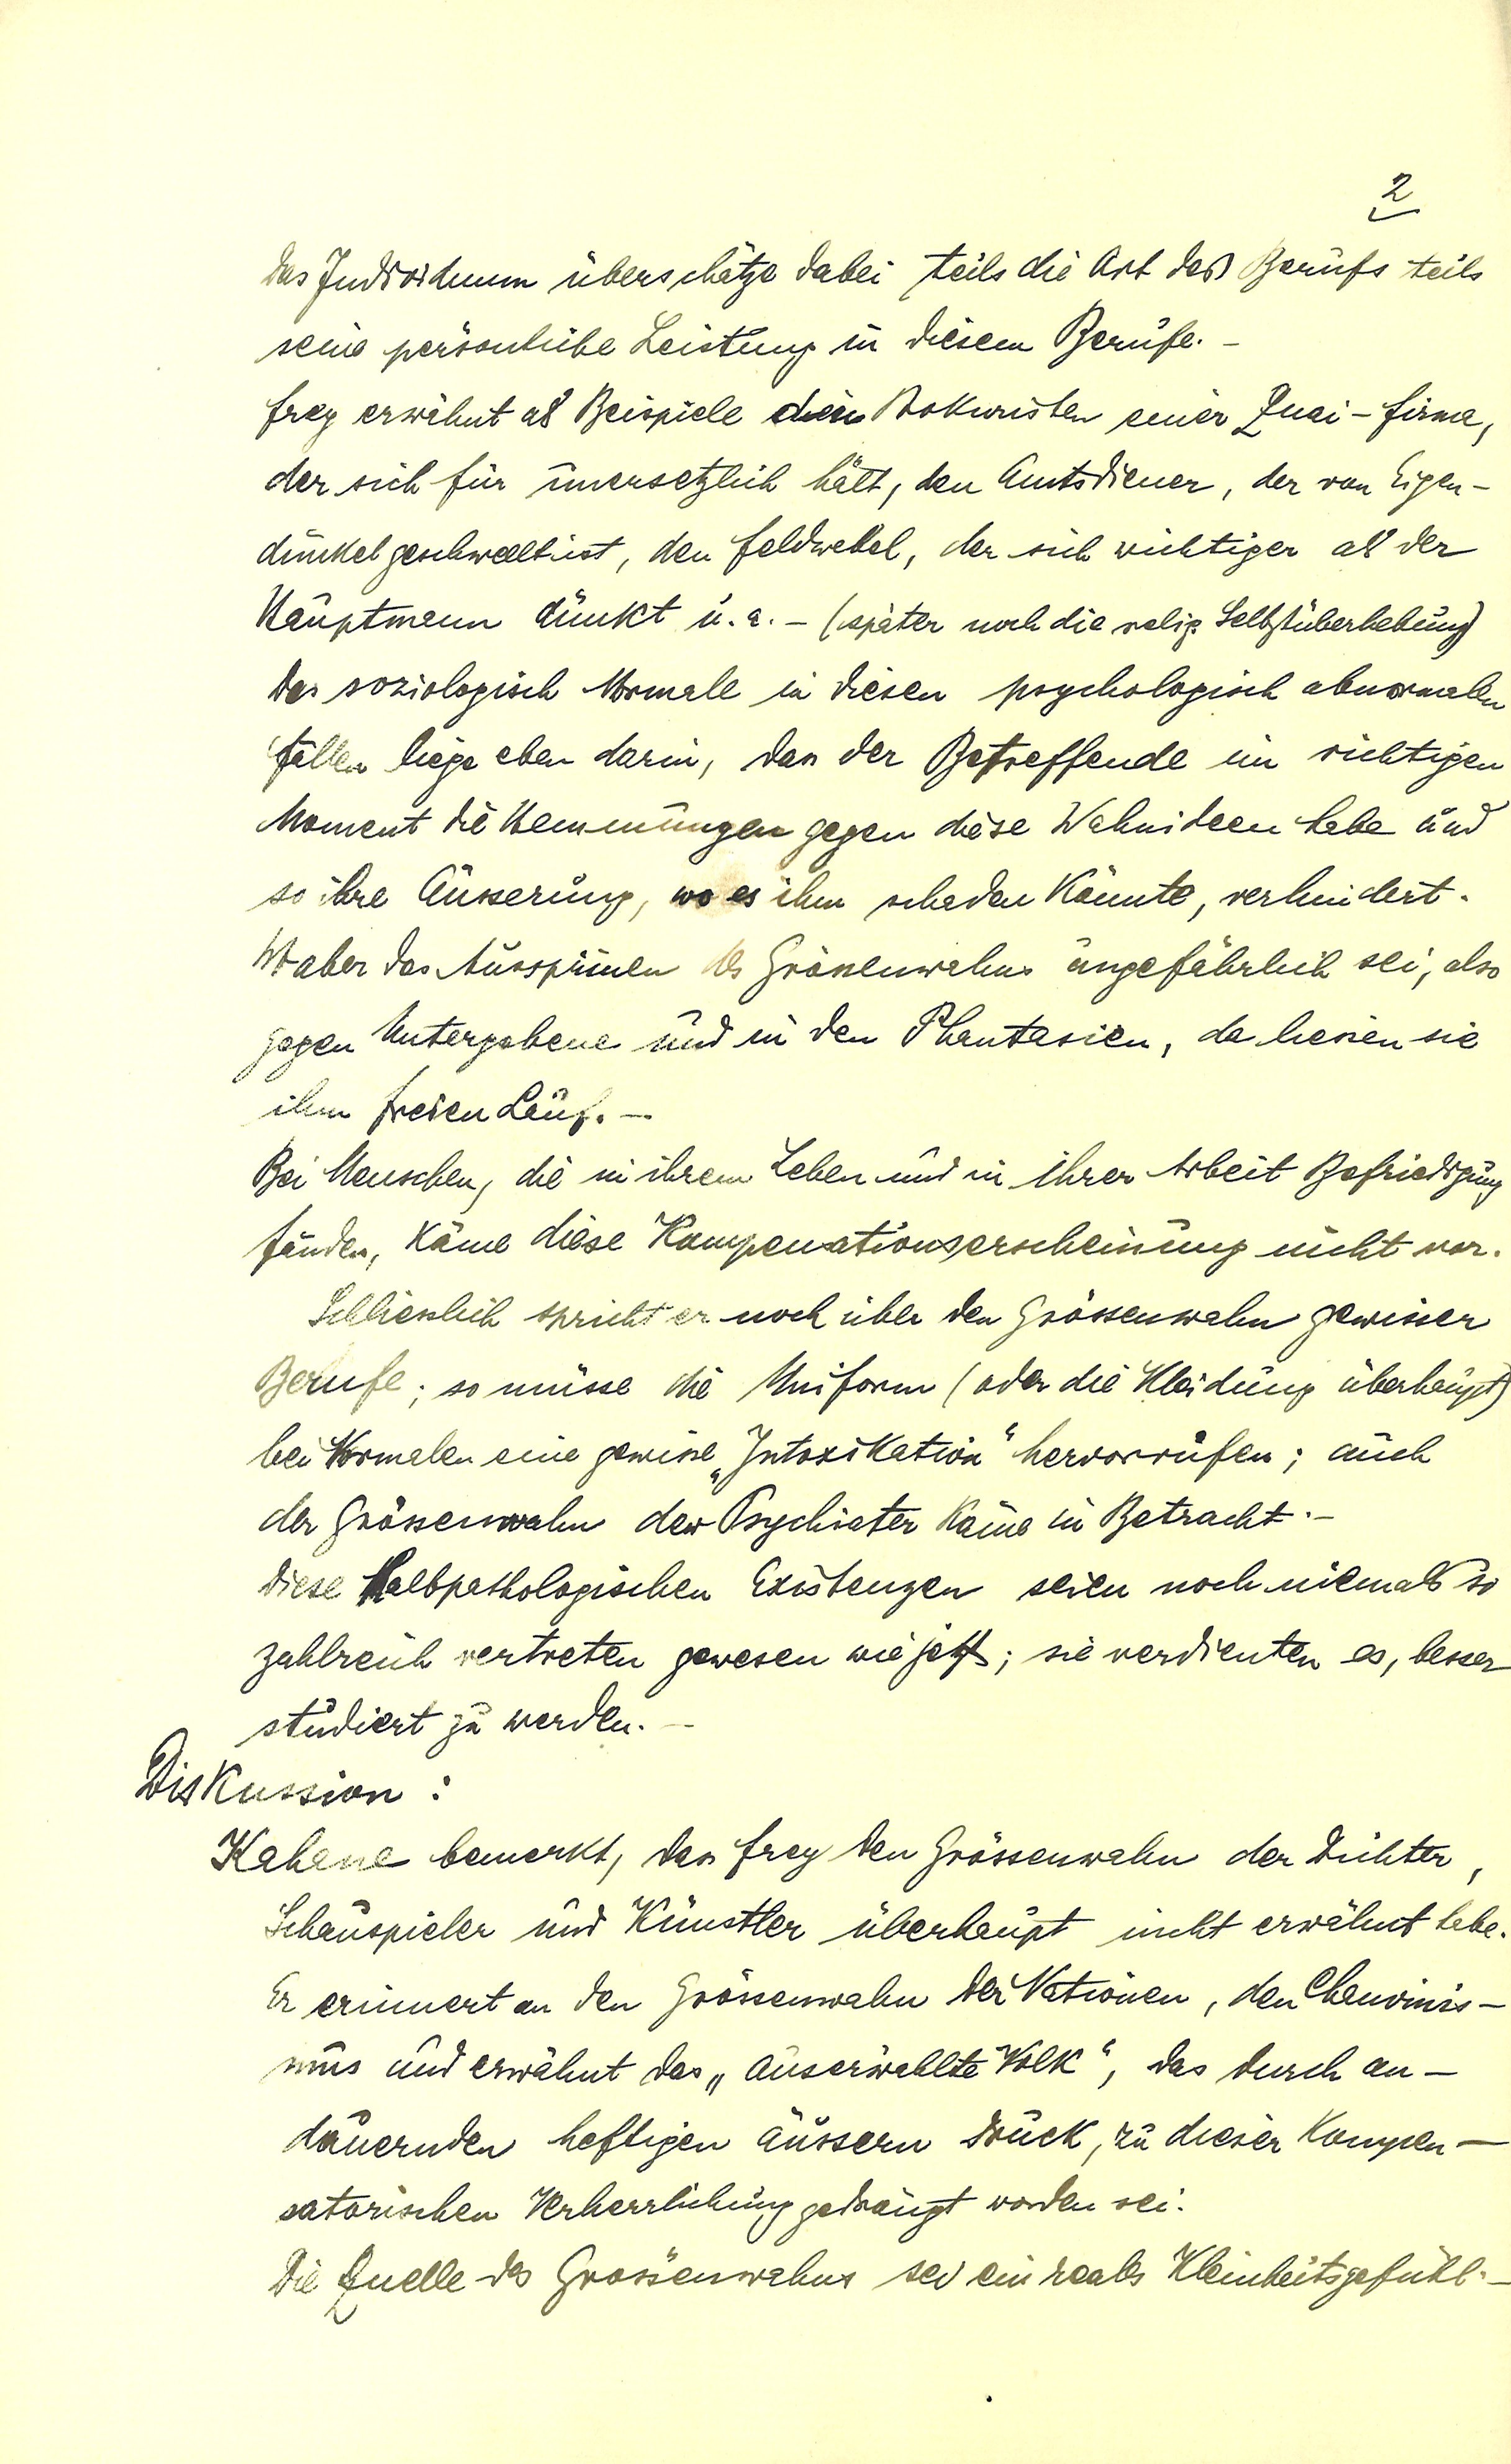 2
Das Individuum überschätze dabei teils die Art des Berufs teils
seine persönliche Leistung in diesem Berufe. -
Frey erwähnt als Beispiele den Prokuristen einer Quai-Firma,
der sich für unersetzlich hält, den Amtsdiener, der von Eigen-
dünkel geschwellt ist, den Feldwebel, der sich wichtiger als der
Hauptmann dünkt u. a. - (später noch die relig. Selbstüberhebung)
Das soziologisch Normale in diesen psychologisch abnormalen
Fällen liege eben darin, dass der Betreffende im richtigen
Moment die Hemmungen gegen diese Wahnideen habe und
so ihre Äusserung, wo es ihm schaden könnte, verhindert.
Wo aber das Ausspinnen des Grössenwahns ungefährlich sei, also
gegen Untergebene und in den Phantasien, da liessen sie
ihm freien Lauf. -
Bei Menschen, die in ihrem Leben und in ihrer Arbeit Befriedigung
fänden, käme diese Kompensationserscheinung nicht vor.
Schliesslich spricht er noch über den Grössenwahn gewisser
Berufe; so müsse die Uniform (oder die Kleidung überhaupt)
bei Normalen eine gewisse „Intoxikation" hervorrufen; auch
der Grössenwahn der Psychiater käme in Betracht. -
Diese halbpathologischen Existenzen seien noch niemals so
zahlreich vertreten gewesen wie jetzt; sie verdienten es, besser
studiert zu werden. -
Diskussion:
Kahane bemerkt, dass Frey den Grössenwahn der Dichter,
Schauspieler und Künstler überhaupt nicht erwähnt habe.
Er erinnert an den Grössenwahn der Nationen, den Chauvinis-
mus und erwähnt das „auserwählte Volk", das durch an-
dauernden heftigen äussern Druck, zu dieser kompen-
satorischen Verherrlichung gedrängt worden sei.
Die Quelle des Grössenwahns sei ein reales Kleinheitsgefühl. -